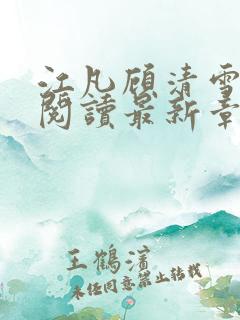 江凡顾清雪
閱讀最新章
王鶴濱
未经同意禁止转载